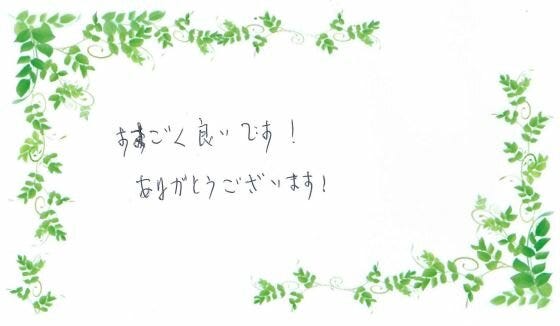 すごく良いです！
ありがとうございます！